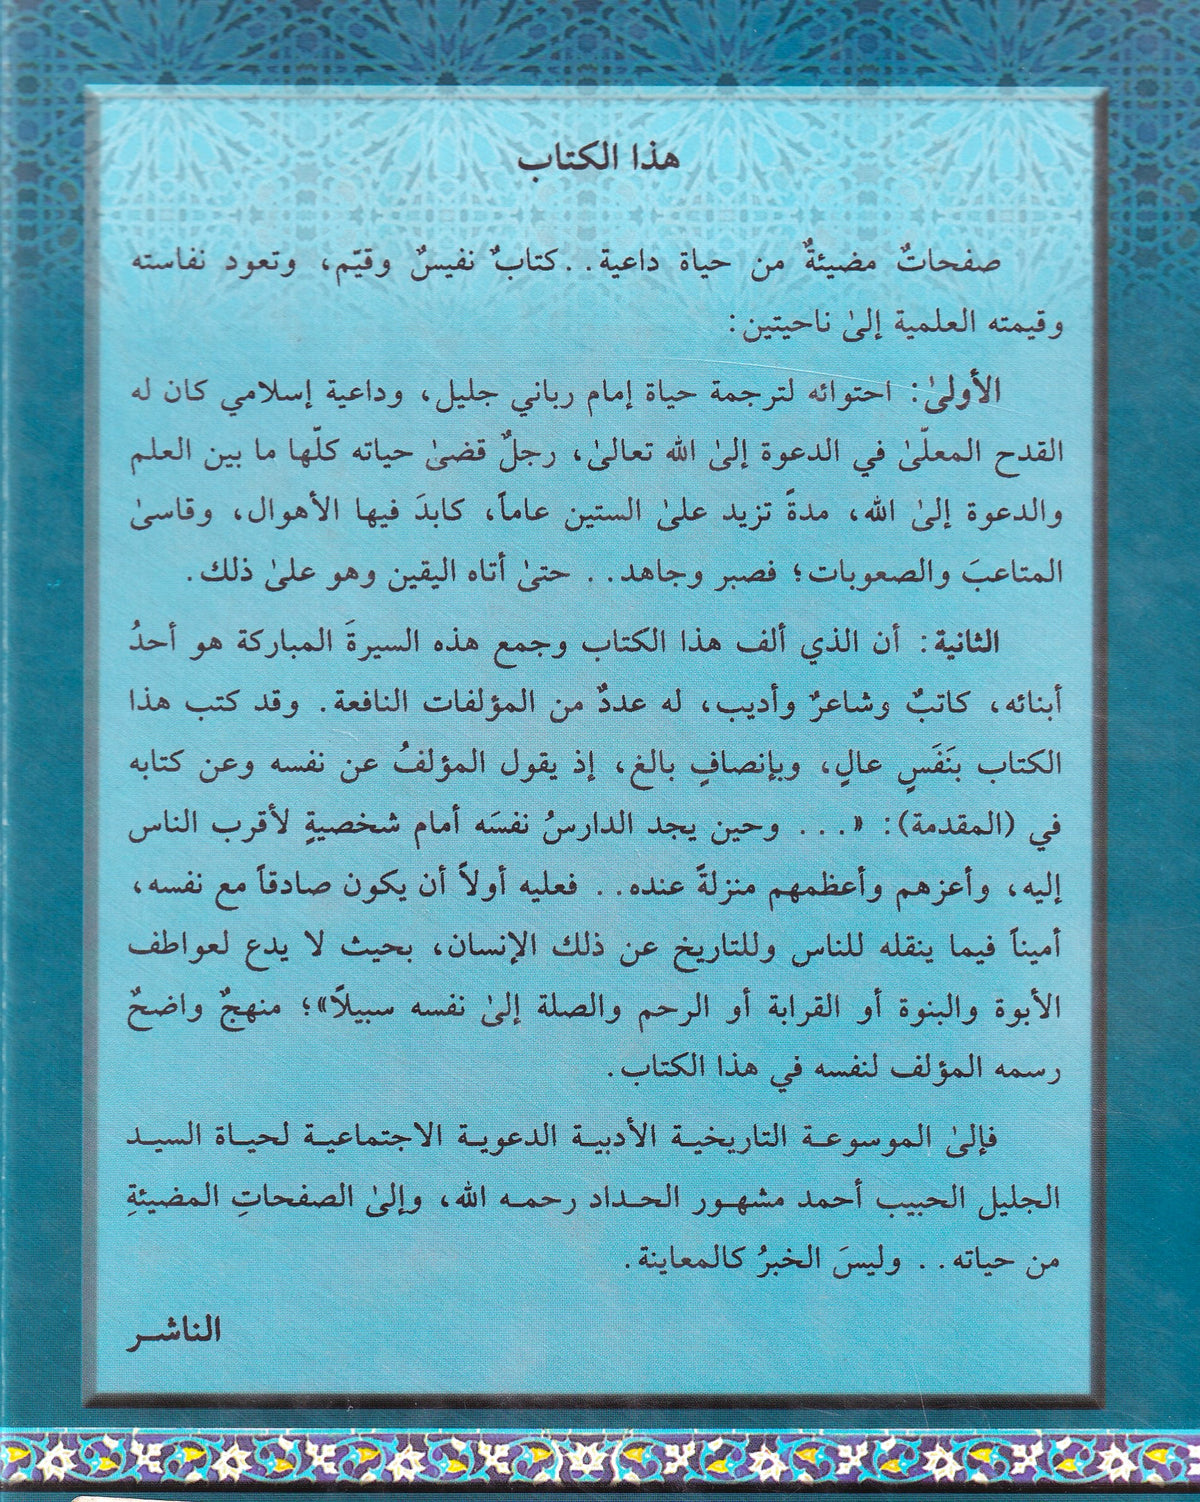 هذا الكتاب
صفحاتٌ مضيئةٌ من حياة داعية.. كتابٌ نفيسٌ وقيّم، وتعود نفاسته
وقيمته العلمية إلىٰ ناحيتين:
الأولىٰ: احتوائه لترجمة حياة إمام رباني جليل، وداعية إسلامي كان له
القدح المعلّىٰ في الدعوة إلىٰ الله تعالىٰ، رجلٌ قضىٰ حياته كلّها ما بين العلم
والدعوة إلىٰ الله، مدةً تزيد علىٰ الستين عاماً، كابدَ فيها الأهوال، وقاسىٰ
المتاعبَ والصعوبات؛ فصبر وجاهد.. حتىٰ أتاه اليقين وهو علىٰ ذلك.
الثانية: أن الذي ألف هذا الكتاب وجمع هذه السيرةَ المباركة هو أحدُ
أبنائه، كاتبٌ وشاعرٌ وأديب، له عددٌ من المؤلفات النافعة. وقد كتب هذا
الكتاب بنَفَسٍ عالٍ، وبإنصافٍ بالغ، إذ يقول المؤلفُ عن نفسه وعن كتابه
في (المقدمة): «... وحين يجد الدارسُ نفسَه أمام شخصيةٍ لأقرب الناس
إليه، وأعزهم وأعظمهم منزلةً عنده.. فعليه أولاً أن يكون صادقاً مع نفسه،
أميناً فيما ينقله للناس وللتاريخ عن ذلك الإنسان، بحيث لا يدع لعواطف
الأبوة والبنوة أو القرابة أو الرحم والصلة إلىٰ نفسه سبيلاً»؛ منهجٌ واضحٌ
رسمه المؤلف لنفسه في هذا الكتاب.
فإلىٰ الموسوعة التاريخية الأدبية الدعوية الاجتماعية لحياة السيد
الجليل الحبيب أحمد مشهور الحداد رحمه الله، وإلىٰ الصفحاتِ المضيئةِ
من حياته.. وليسَ الخبرُ كالمعاينة.
الناشر